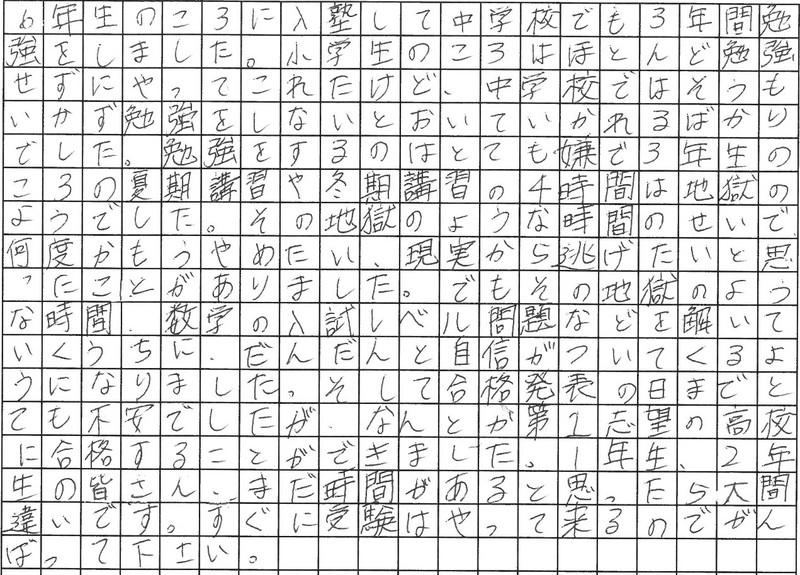 6年生のころに入塾して中学校でも3年間勉
強をしました。小学生のころはほとんど勉強
せずにやってこれたけど、中学校ではそうも
いかず勉強をしないとおいていかれるばかり
でした。勉強をするのはとても嫌で3年生の
ころの夏期講習や冬期講習の4時間は地獄の
ようでした。その地獄のような時間のせいで
何度かもうやめたい、現実から逃げたいと思
ったことがありました。でもその地獄のよう
な時間、数学の入試レベル問題などを解いて
いくうちに、だんだんと自信がついてくるよ
うになりました。そして合格発表の日までと
ても不安でしたが、なんとか第1志望の高校
に合格することができました。1年生、2年
生の皆さん、まだ時間があると思ったら大間
違いです。すぐに受験はやって来るのでがん
ばって下さい。